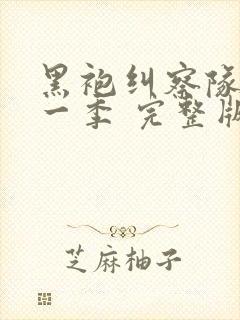 黑袍纠察队
一季 完整版
芝麻柚子